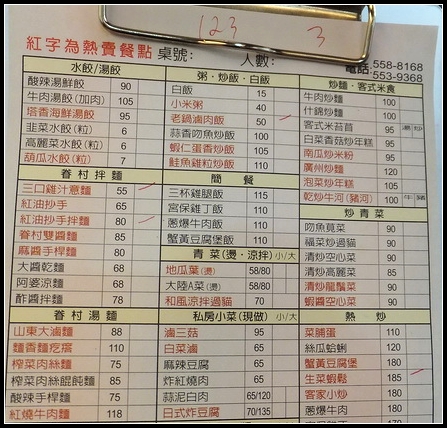 123
3
紅字為熱賣餐點 桌號: 人數: 電話 558-8168
553-9368
水餃/湯餃
酸辣湯鮮餃 90
牛肉湯餃(加肉) 105
塔香海鮮湯餃 95
韭菜水餃(粒) 6
高麗菜水餃(粒) 6
胡瓜水餃(粒) 7
眷村拌麵
三口雞汁意麵 55
紅油抄手 65
紅油抄手拌麵 80
眷村雙醬麵 85
麻醬手桿麵 80
大醬乾麵 68
阿婆涼麵 68
酢醬拌麵 78
眷村湯麵
山東大滷麵 88
麵香麵疙瘩 110
榨菜肉絲麵 75
榨菜肉絲餛飩麵 85
酸辣手桿麵 75
紅燒牛肉麵 118
粥·炒飯·白飯
白飯 15
小米粥 40
老鍋滷肉飯 50
蒜香吻魚炒飯 100
蝦仁蛋香炒飯 105
鮭魚雞粒炒飯 110
簡餐
三杯雞腿飯 115
宮保雞丁飯 110
蔥爆牛肉飯 110
蟹黃豆腐堡飯 110
青菜(燙·涼拌) 小/大
地瓜葉(燙) 58/80
大陸A菜(燙) 58/80
和風涼拌過貓 70
私房小菜(現做) 小/大
滷三菇 95
白菜滷 65
麻辣豆腐 65
炸紅燒肉 65
蒜泥白肉 65/120
日式炸豆腐 70/135
炒麵·客式米食
牛肉炒麵 100
什錦炒麵 100
客式米苔目 95
白菜香菇炒年糕 95
南瓜炒米粉 95
廣州炒麵 120
泡菜炒年糕 105
乾炒牛河(豬河) 100 牛 豬
炒青菜
吻魚莧菜 90
福菜炒過貓 90
清炒空心菜 90
清炒高麗菜 85
清炒龍鬚菜 90
蝦醬空心菜 90
熱炒
菜脯蛋 110
絲瓜蛤蜊 120
蟹黃豆腐堡 180
生菜蝦鬆 185
客家小炒 180
蔥爆牛肉 180